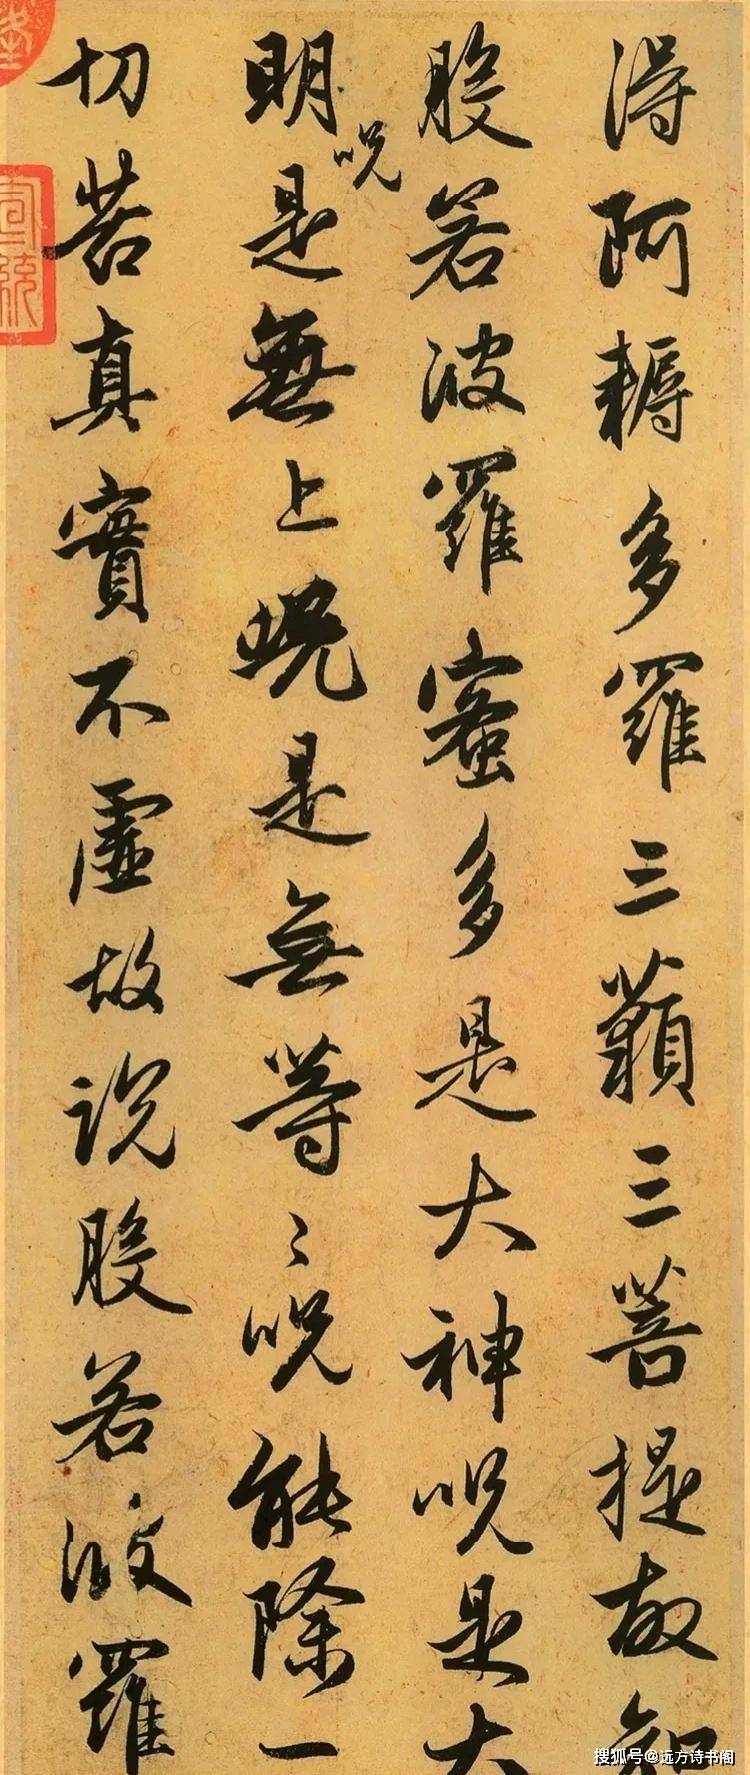 得阿耨多羅三藐三菩提故知
般若波羅蜜多是大神呪是大
明呪是無上呪是無等〻呪能除一
切苦真實不虛故説般若波羅
宣統
搜狐号@远方诗书阁